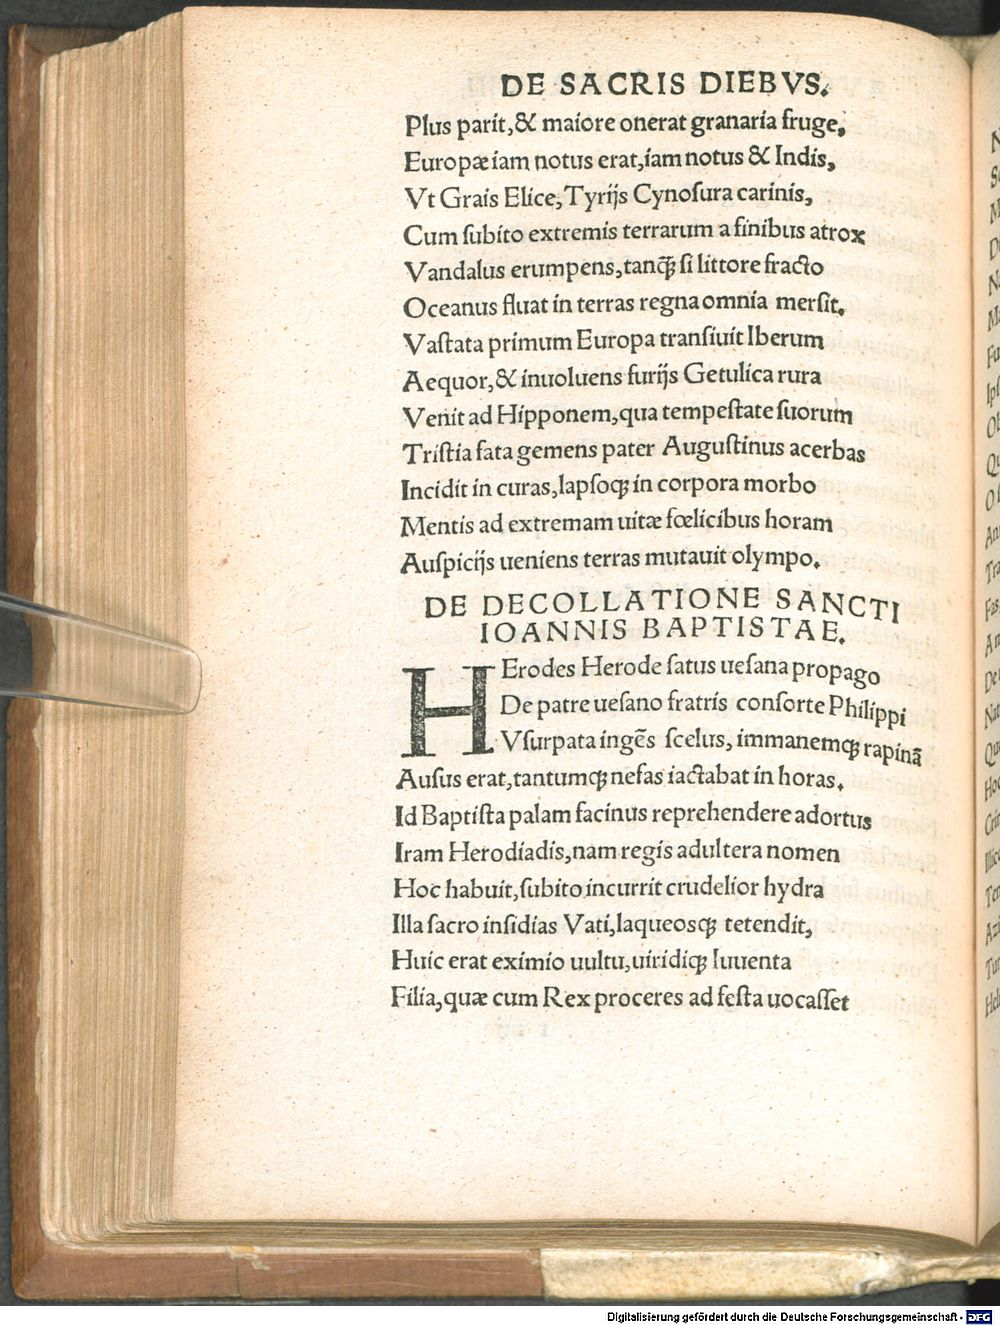 DE SACRIS DIEBVS.
Plus parit,& maiore onerat granaria fruge,
Europæ iam notus erat,iam notus & Indis,
Vt Grais Elice,Tyrijs Cynoſura carinis,
Cum ſubito extremis terrarum a finibus atrox
Vandalus erumpens,tanꝙ̃ ſi littore fracto
Oceanus fluat in terras regna omnia merſit.
Vaſtata primum Europa tranſiuit Iberum
Aequor,& inuoluens furijs Getulica rura
Venit ad Hipponem,qua tempeſtate ſuorum
Triſtia fata gemens pater Auguſtinus acerbas
Incidit in curas,lapſoꝙ in corpora morbo
Mentis ad extremam uitæ fœlicibus horam
Auſpicijs ueniens terras mutauit olympo.
DE DECOLLATIONE SANCTI
IOANNIS BAPTISTAE.
HErodes Herode ſatus ueſana propago
De patre ueſano fratris conſorte Philippi
Vſurpata ingẽs ſcelus, immanemꝙ rapinã
Auſus erat,tantumꝙ nefas iactabat in horas.
Id Baptiſta palam facinus reprehendere adortus
Iram Herodiadis,nam regis adultera nomen
Hoc habuit,ſubito incurrit crudelior hydra
Illa ſacro inſidias Vati,laqueosꝙ tetendit,
Huic erat eximio uultu,uiridiꝙ Iuuenta
Filia,quæ cum Rex proceres ad feſta uocaſſet
Digitalisierung gefördert durch die Deutsche Forschungsgemeinschaft - DFG